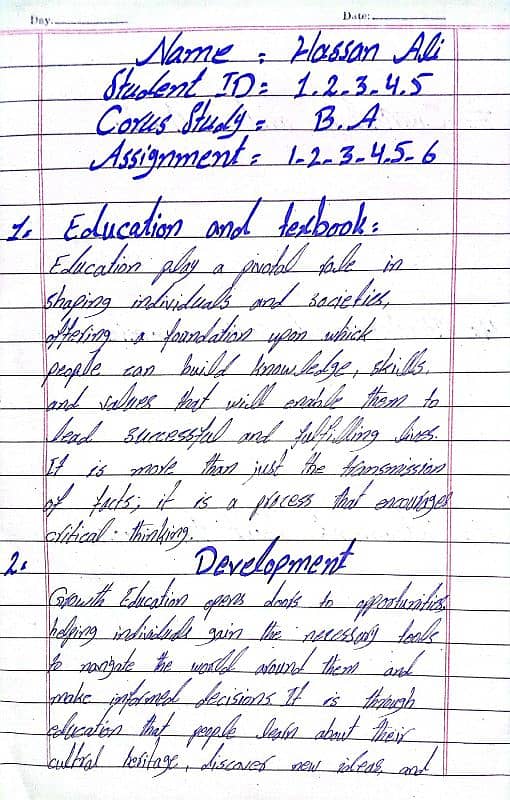 Day. Date:
Name : Hassan Ali
Student ID: 1.2.3.4.5
Corus Study : B.A
Assignment : 1-2-3-4.5-6
1. Education and texbook:
Education play a pivotal role in
shaping individuals and societies,
offering a foundation upon which
people can build knowledge, skills,
and values that will enable them to
lead successful and fulfilling lives.
It is more than just the transmission
of facts; it is a process that encourages
critical thinking.
2. Development
Growth Education opens doors to opportunities,
helping individuals gain the necessary tools
to navigate the world around them and
make informed decisions It is through
education that people learn about their
cultral heritage, discover new ideas, and